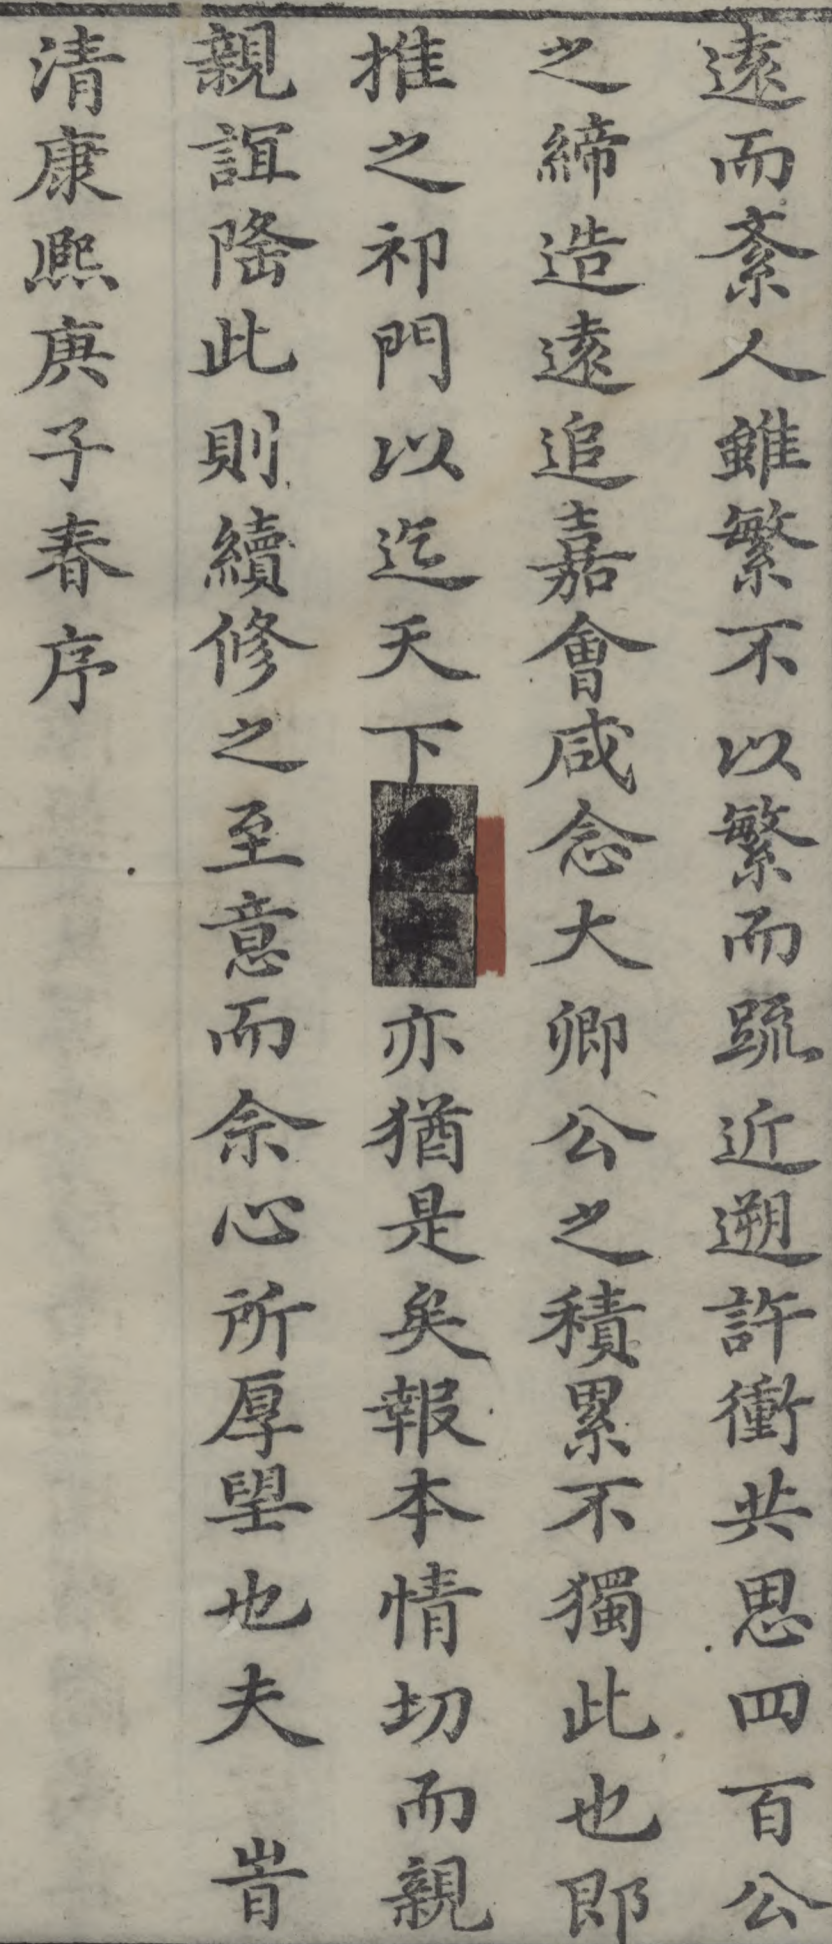 遠而紊人雖繁不以繁而䟽近遡許衝共思四百公
之締造遠追嘉會咸念大卿公之積累不獨此也即
推之祁門以迄天下亦猶是矣報本情切而親
親誼隆此則續修之至意而余心所厚望也夫 旹
清康熙庚子春序